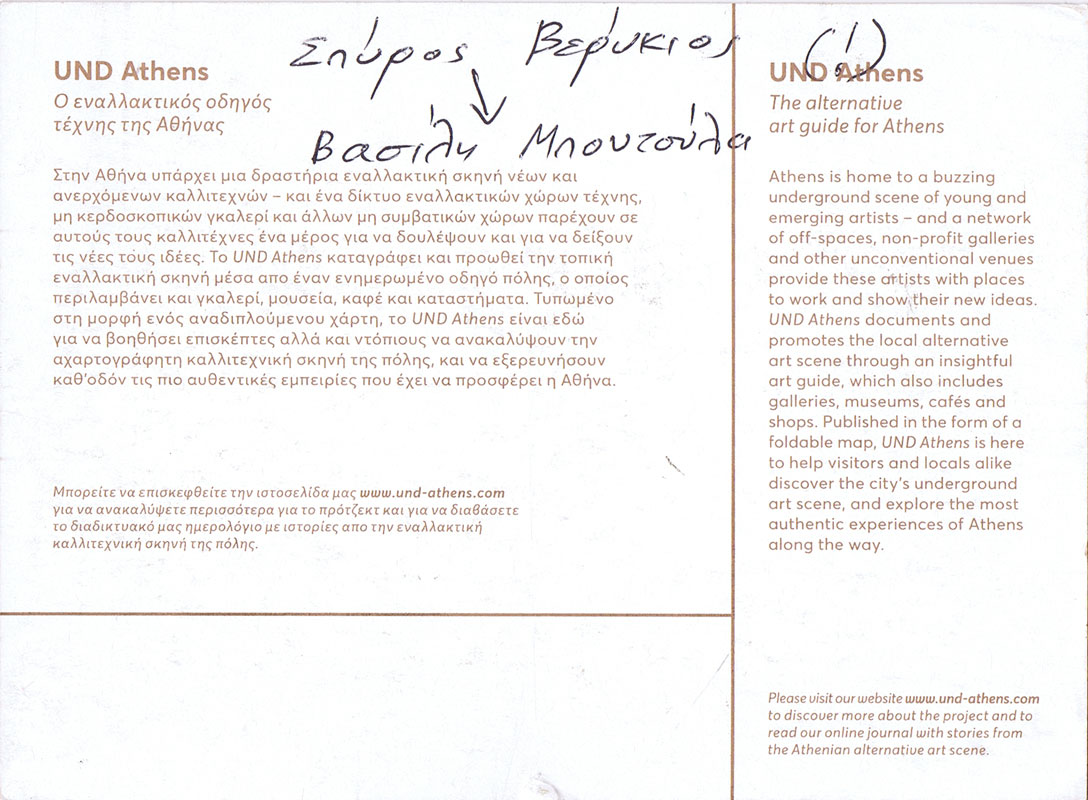 Σπύρος Βερύκιος (!)
Βασίλη Μπουτούλα
UND Athens
Ο εναλλακτικός οδηγός
τέχνης της Αθήνας
Στην Αθήνα υπάρχει μια δραστήρια εναλλακτική σκηνή νέων και
ανερχόμενων καλλιτεχνών – και ένα δίκτυο εναλλακτικών χώρων τέχνης,
μη κερδοσκοπικών γκαλερί και άλλων μη συμβατικών χώρων παρέχουν σε
αυτούς τους καλλιτέχνες ένα μέρος για να δουλέψουν και για να δείξουν
τις νέες τους ιδέες. Το UND Athens καταγράφει και προωθεί την τοπική
εναλλακτική σκηνή μέσα απο έναν ενημερωμένο οδηγό πόλης, ο οποίος
περιλαμβάνει και γκαλερί, μουσεία, καφέ και καταστήματα. Τυπωμένο
στη μορφή ενός αναδιπλούμενου χάρτη, το UND Athens είναι εδώ
για να βοηθήσει επισκέπτες αλλά και ντόπιους να ανακαλύψουν την
αχαρτογράφητη καλλιτεχνική σκηνή της πόλης, και να εξερευνήσουν
καθ'οδόν τις πιο αυθεντικές εμπειρίες που έχει να προσφέρει η Αθήνα.
Μπορείτε να επισκεφθείτε την ιστοσελίδα μας www.und-athens.com
για να ανακαλύψετε περισσότερα για το πρότζεκτ και για να διαβάσετε
το διαδικτυακό μας ημερολόγιο με ιστορίες απο την εναλλακτική
καλλιτεχνική σκηνή της πόλης.
UND Athens
The alternative
art guide for Athens
Athens is home to a buzzing
underground scene of young and
emerging artists – and a network
of off-spaces, non-profit galleries
and other unconventional venues
provide these artists with places
to work and show their new ideas.
UND Athens documents and
promotes the local alternative
art scene through an insightful
art guide, which also includes
galleries, museums, cafés and
shops. Published in the form of a
foldable map, UND Athens is here
to help visitors and locals alike
discover the city's underground
art scene, and explore the most
authentic experiences of Athens
along the way.
Please visit our website www.und-athens.com
to discover more about the project and to
read our online journal with stories from
the Athenian alternative art scene.